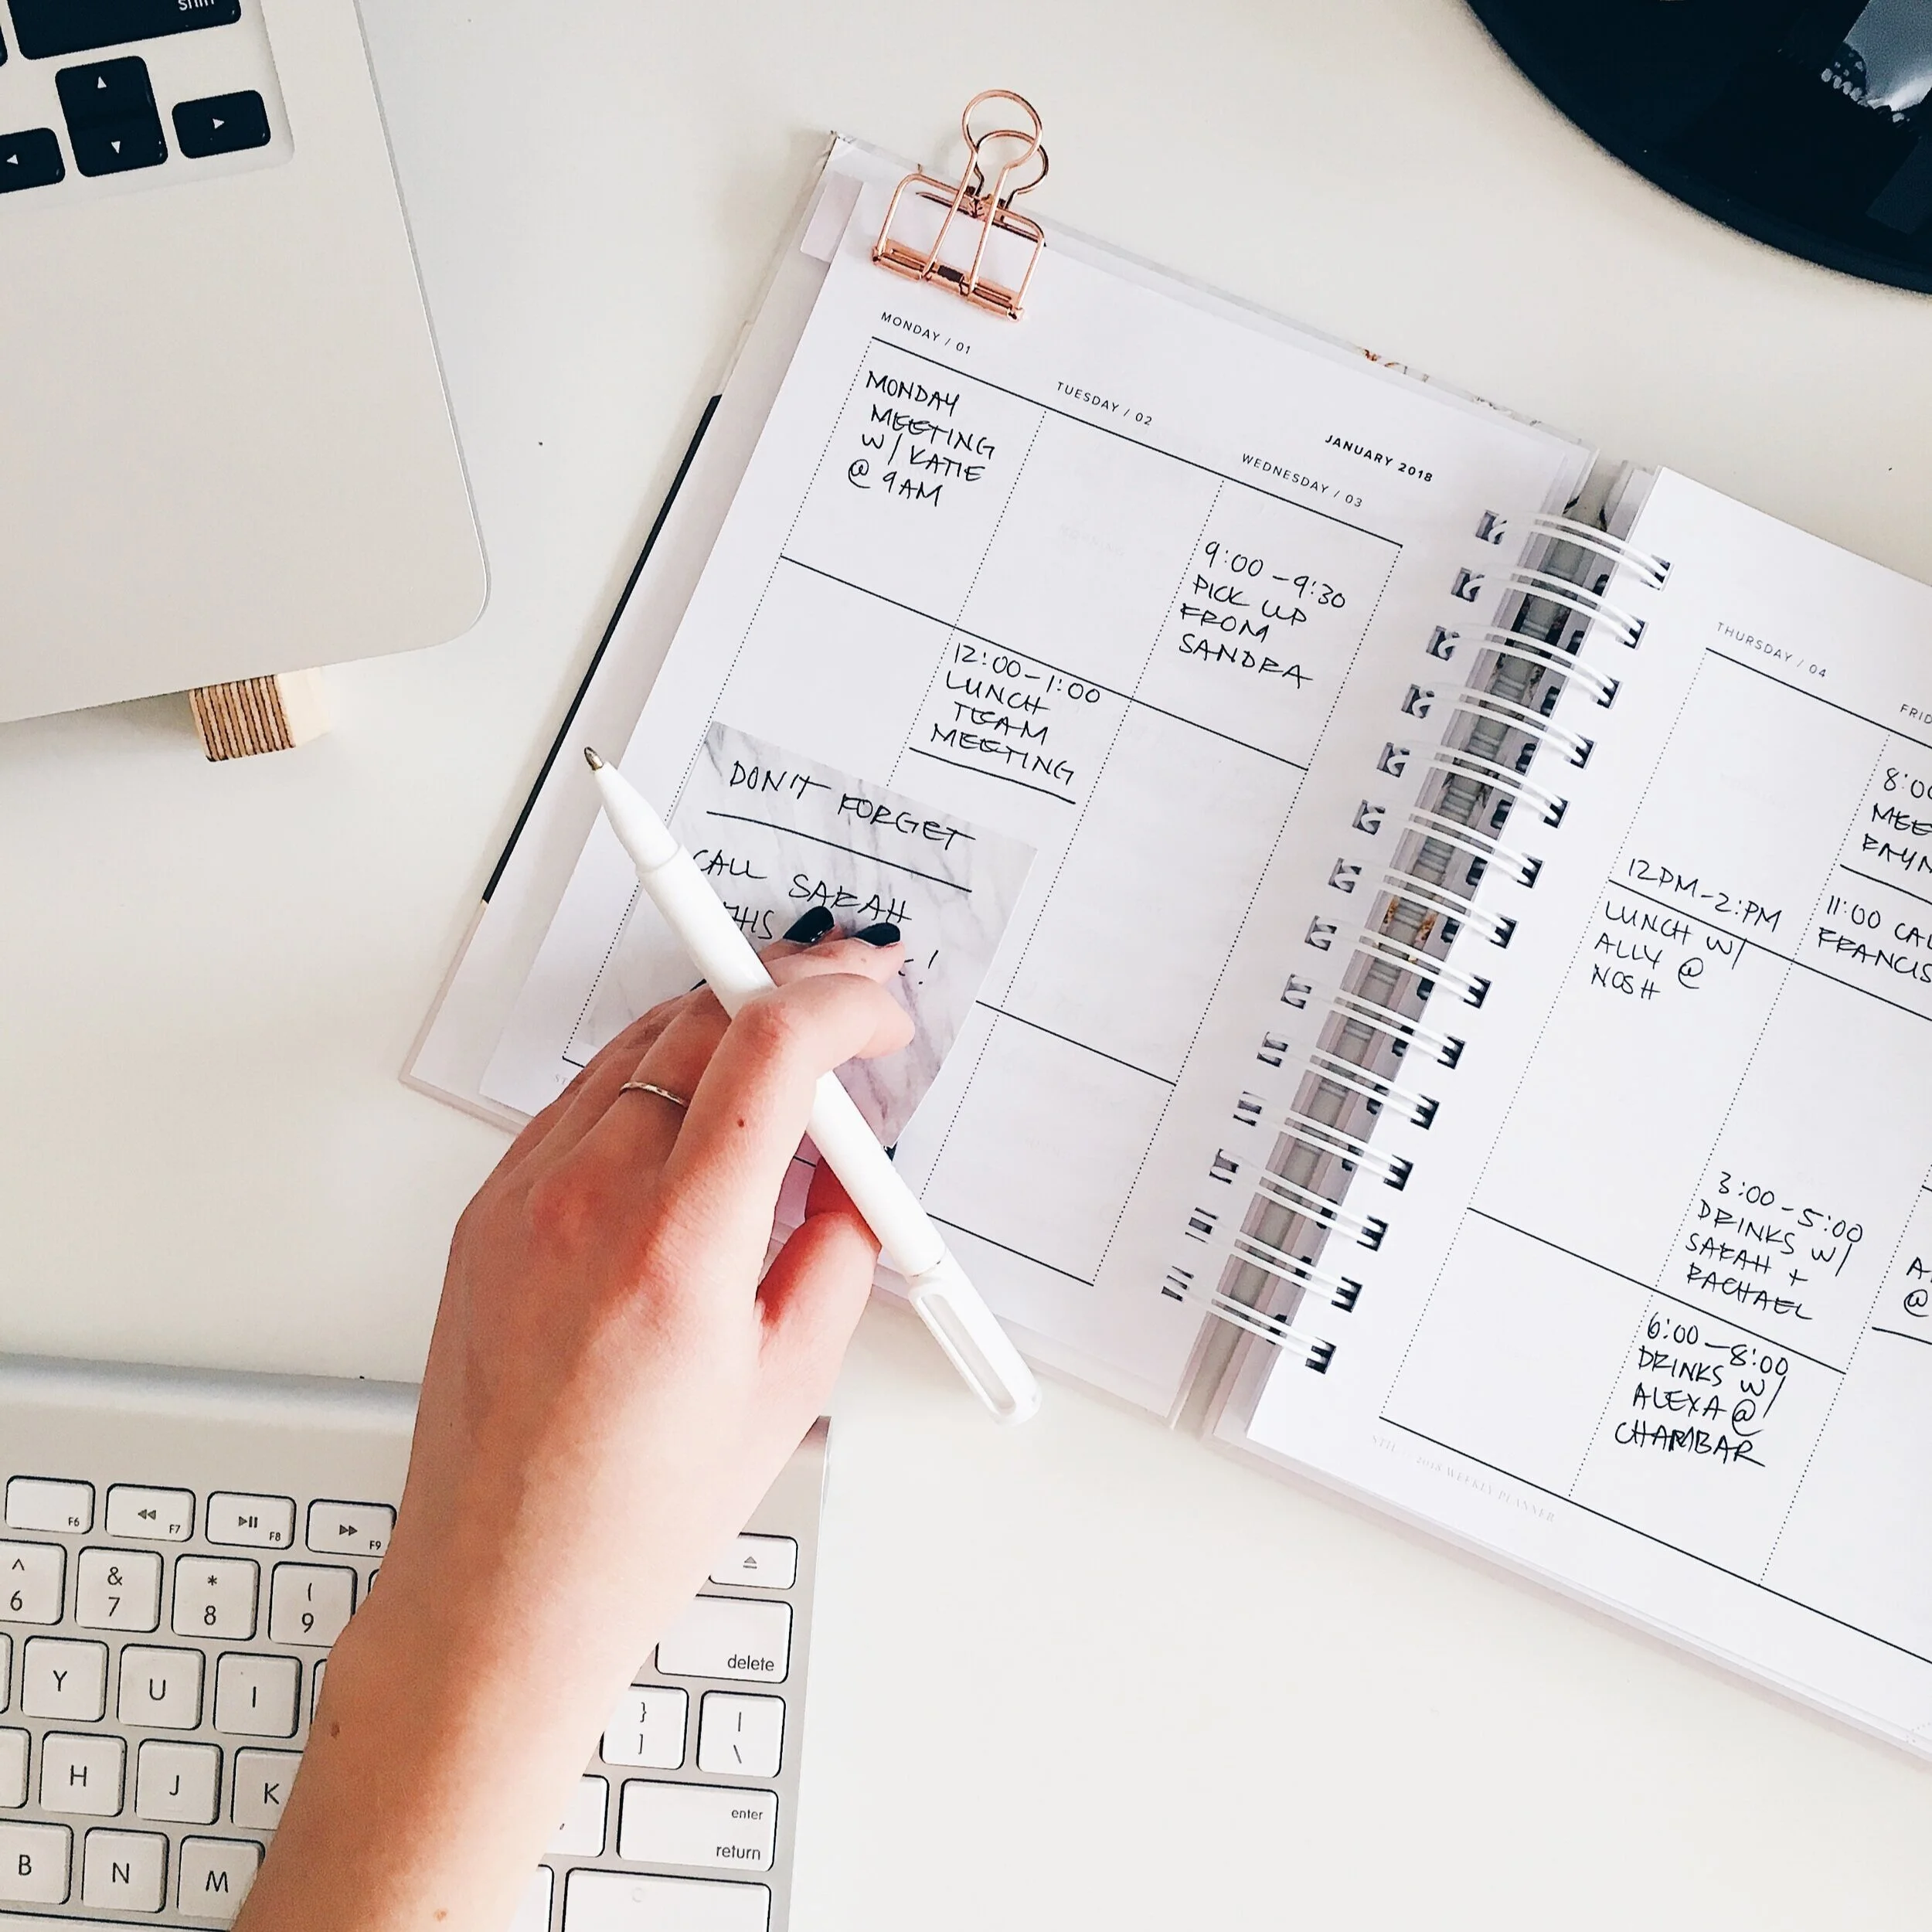 shift
MONDAY / 01
MONDAY
MEETING
W/ KATIE
@ 9AM
TUESDAY / 02
12:00-1:00
LUNCH
TEAM
MEETING
JANUARY 2018
WEDNESDAY / 03
9:00-9:30
PICK UP
FROM
SANDRA
DON'T FORGET
CALL SARAH
THIS
!
THURSDAY / 04
12PM-2:PM
LUNCH W/
ALLY @
NOSH
FRID
8:00
MEE
PAYM
11:00 CAL
FRANCIS
3:00-5:00
DRINKS W/
SARAH +
RACHAEL
6:00-8:00
DRINKS W/
ALEXA @
CHAMBAR
A
@
2018 WEEKLY PLANNER
F6
F7
F8
F9
^
6
&
7
*
8
(
9
delete
Y
U
I
}
]
|
\
H
J
K
enter
return
B
N
M